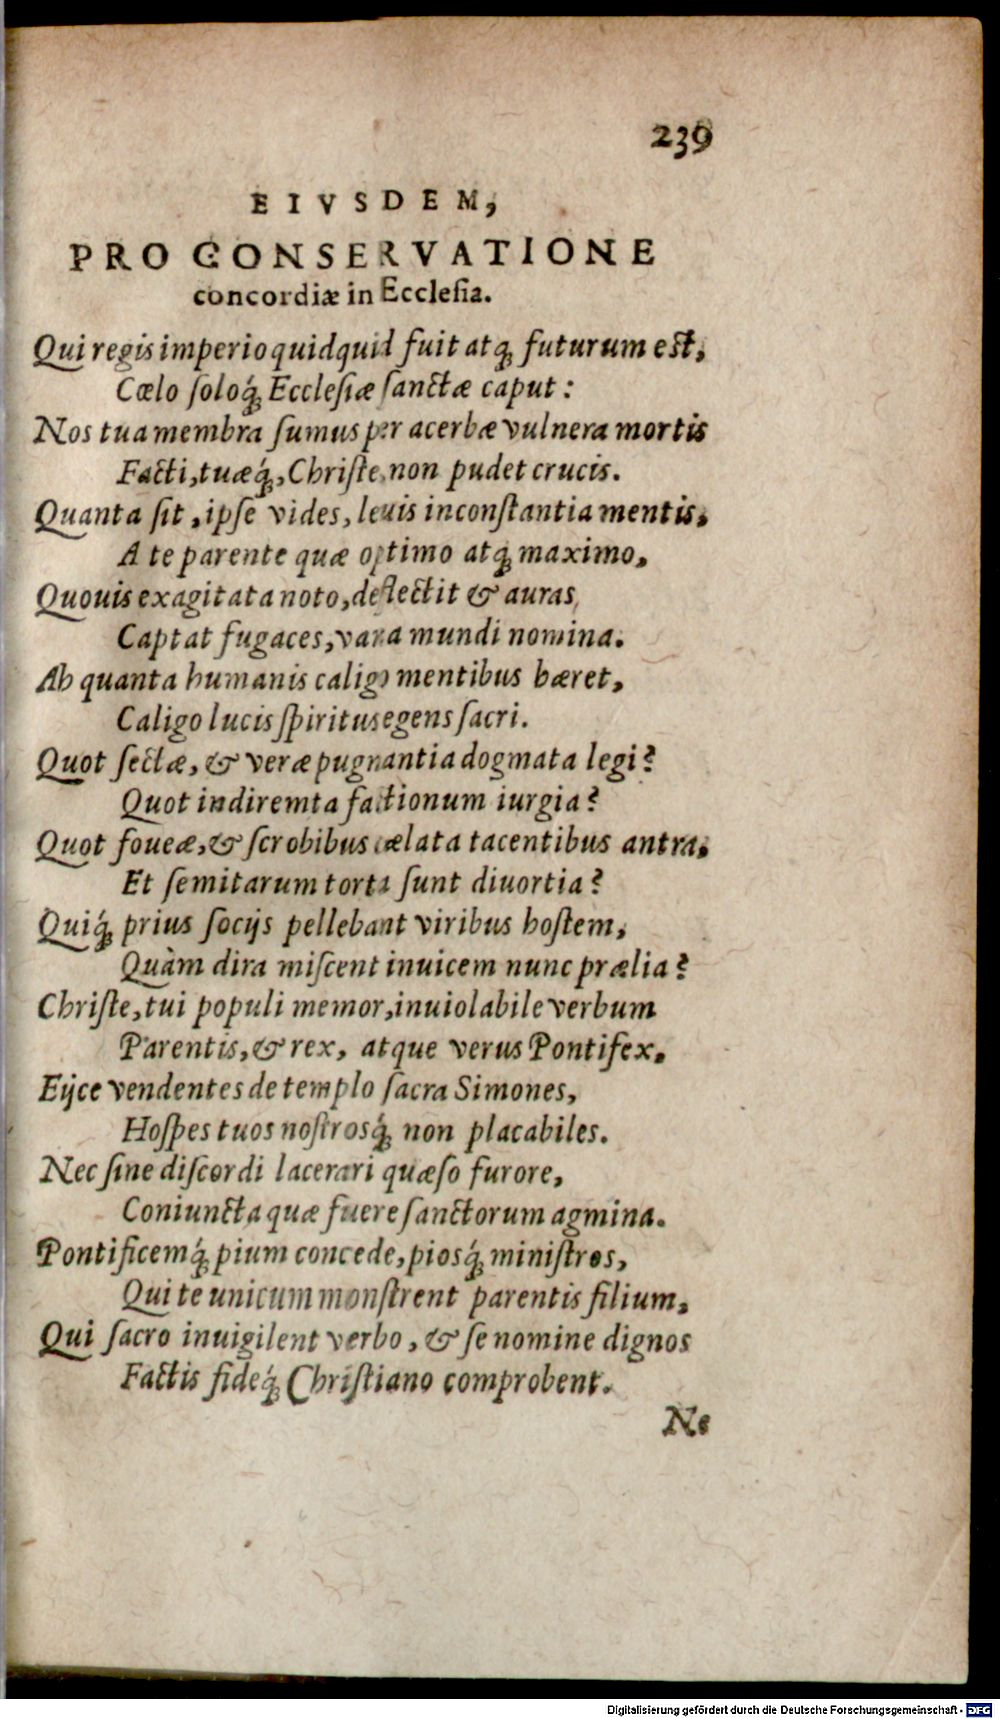 239
EIVSDEM,
PRO CONSERVATIONE
concordiæ in Ecclesia.
Qui regis imperio quidquid fuit atq́; futurum est,
Cœlo soloq́; Ecclesiæ sanctæ caput:
Nos tua membra sumus per acerbæ vulnera mortis
Facti, tuæq́;, Christe, non pudet crucis.
Quanta sit, ipse vides, leuis inconstantia mentis,
A te parente quæ optimo atq; maximo,
Quouis exagitata noto, deflectit & auras
Captat fugaces, vana mundi nomina.
Ah quanta humanis caligo mentibus hæret,
Caligo lucis spiritus egens sacri.
Quot sectæ, & veræ pugnantia dogmata legi?
Quot indiremta factionum iurgia?
Quot foueæ, & scrobibus cælata tacentibus antra,
Et semitarum torta sunt diuortia?
Quiq́; prius socijs pellebant viribus hostem,
Quàm dira miscent inuicem nunc prælia?
Christe, tui populi memor, inuiolabile verbum
Parentis, & rex, atque verus Pontifex,
Eijce vendentes de templo sacra Simones,
Hospes tuos nostrosq́; non placabiles.
Nec sine discordi lacerari quæso furore,
Coniuncta quæ fuere sanctorum agmina.
Pontificemq́; pium concede, piosq́; ministros,
Qui te unicum monstrent parentis filium,
Qui sacro inuigilent verbo, & se nomine dignos
Factis fideq́; Christiano comprobent.
Ne
Digitalisierung gefördert durch die Deutsche Forschungsgemeinschaft - DFG